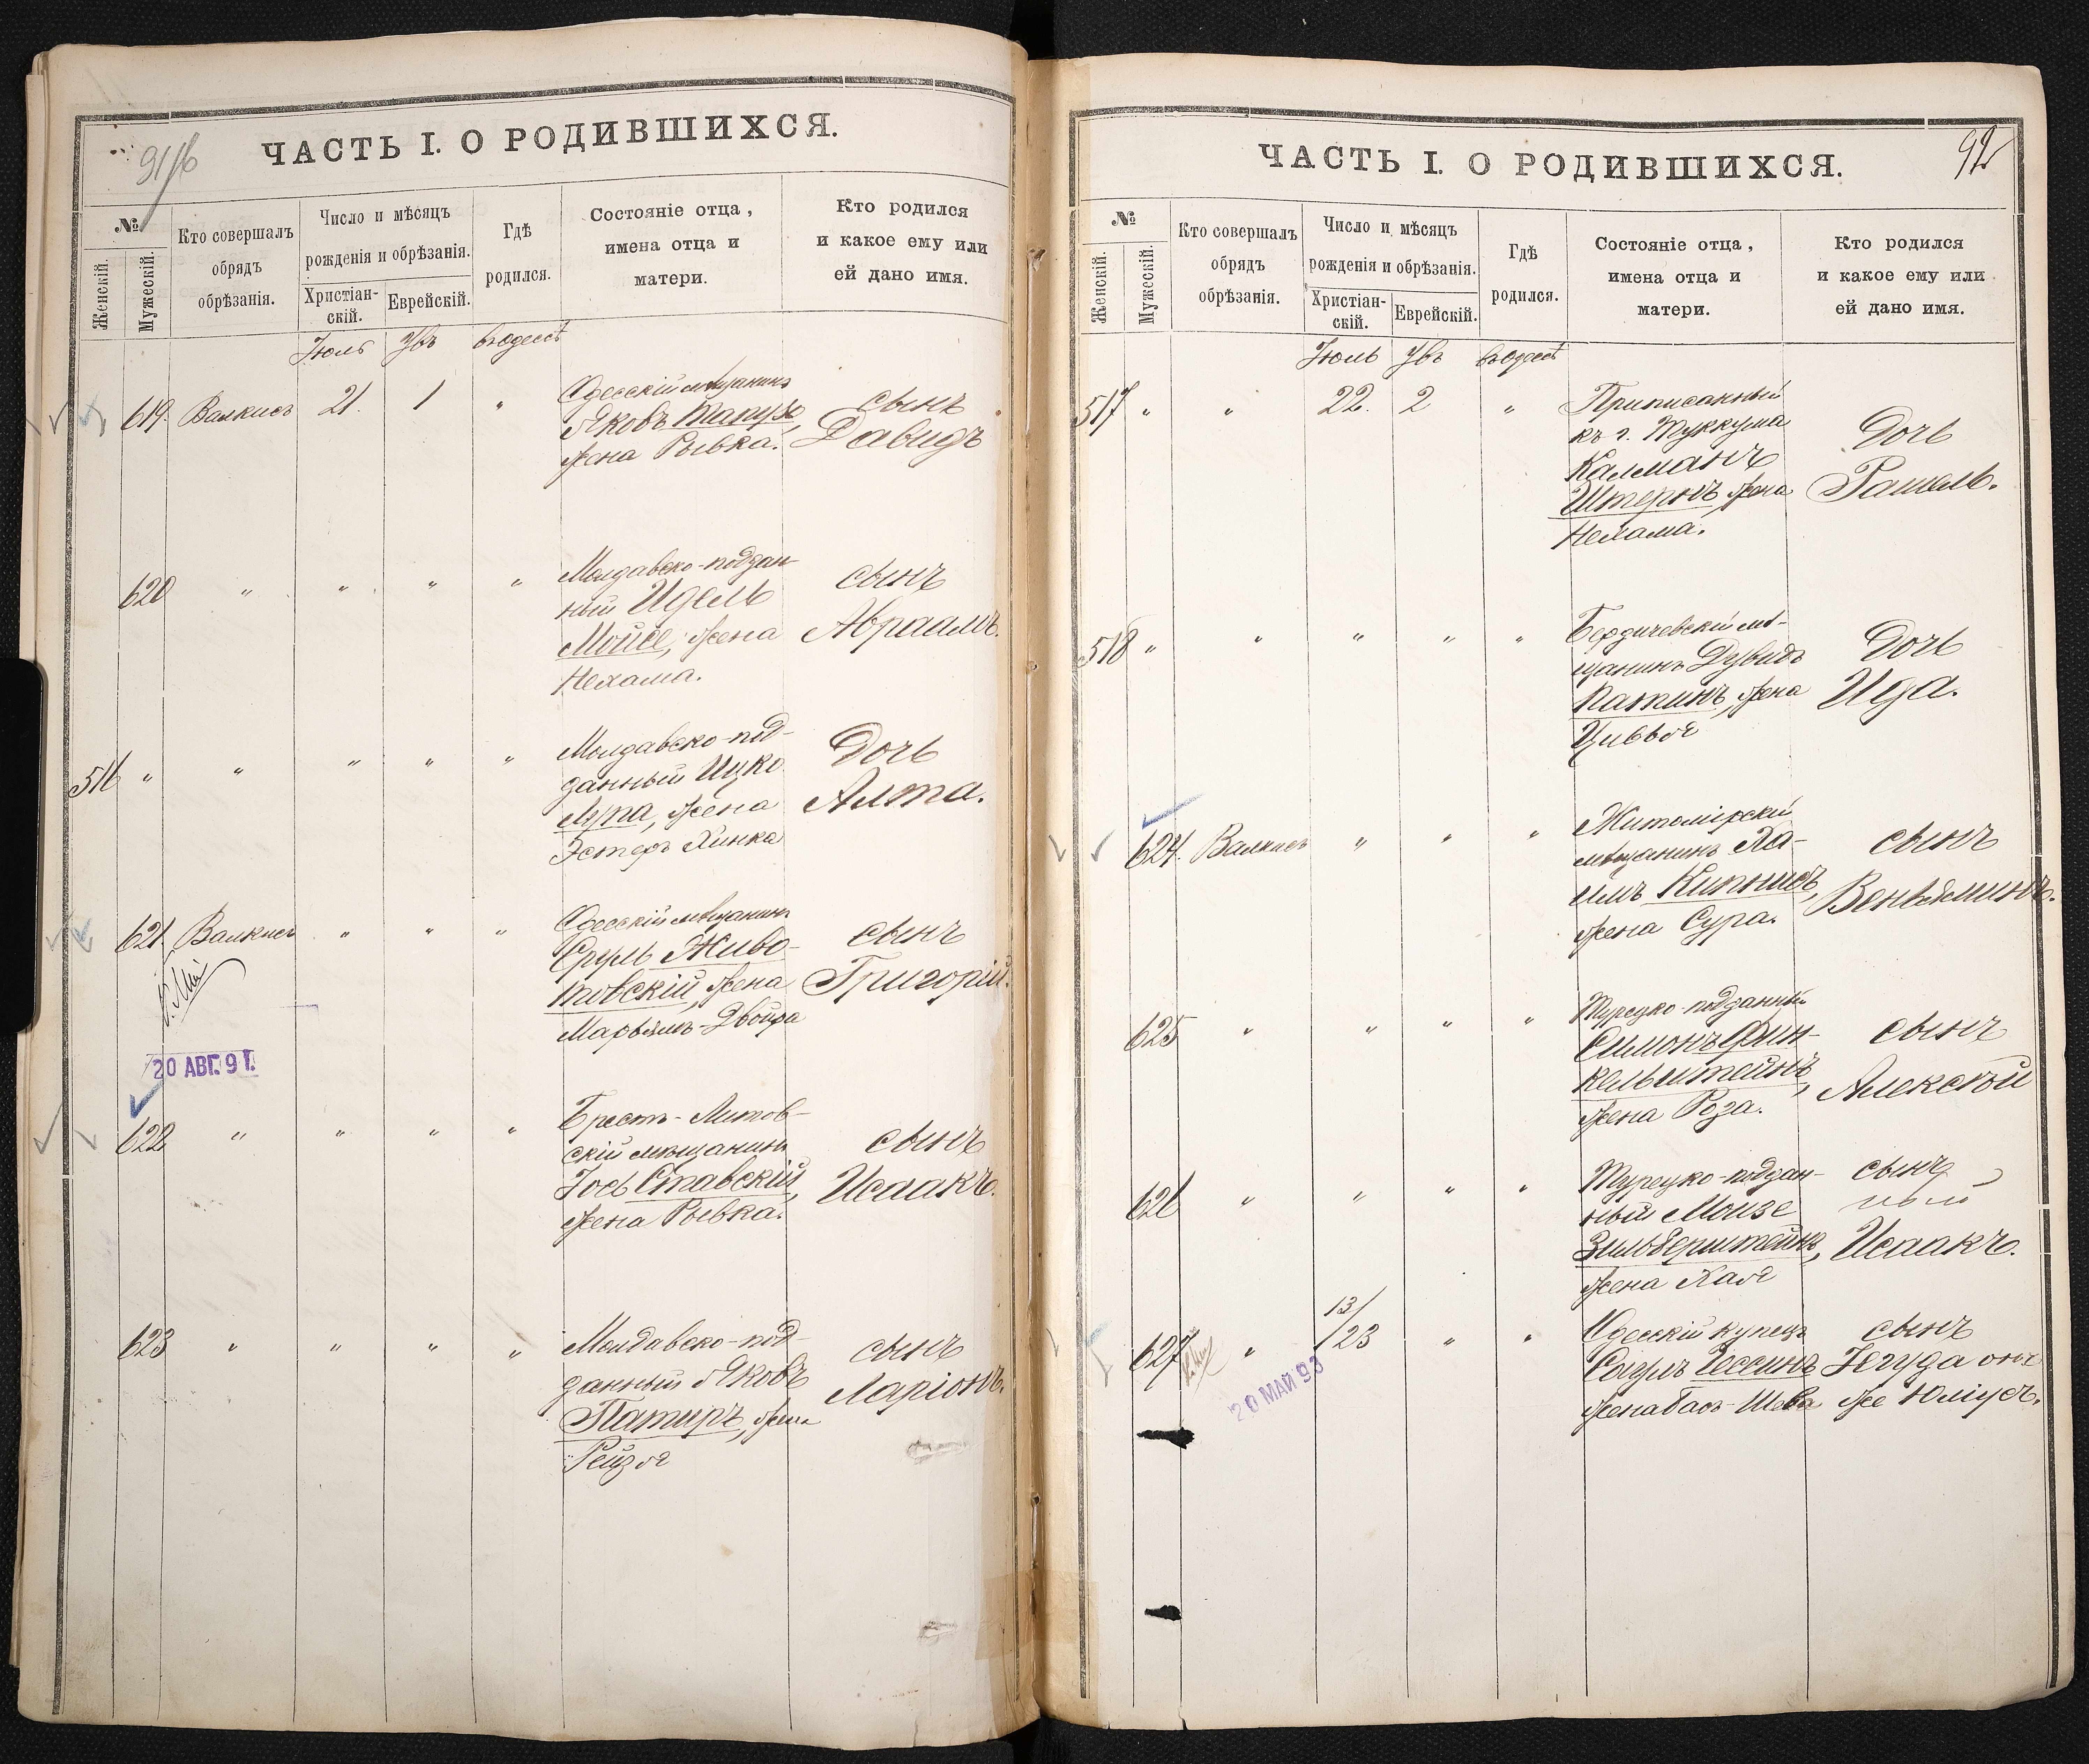 91/б
ЧАСТЬ I. О РОДИВШИХСЯ.
№
Женскій.
Мужескій.
Кто совершалъ
обрядъ
обрѣзанія.
Число и мѣсяцъ
рожденія и обрѣзанія.
Христіан-
скій.
Еврейскій.
Гдѣ
родился.
Состояніе отца,
имена отца и
матери.
Кто родился
и какое ему или
ей дано имя.
Іюль Увъ въ Одессѣ
619. Валкисъ 21. 1 " Одесскій мѣщанинъ
Яковъ
жена Рывка.
сынъ
Давидъ
620 " " " " Молдавско-поддан-
ный Идель
Мойсе, жена
Нехама.
сынъ
Авраамъ.
516 " " " " " Молдавско-под-
данный Ицко
Лупа, жена
Эстеръ Хинка
Дочь
Алта.
621. Валкисъ " " " Одесскій мѣщанинъ
Сруль Живо-
товскій, жена
Марьямъ-Двойра
сынъ
Григорій.
20 АВГ. 9 Г.
622 " " " " Брестъ-Литов-
скій мѣщанинъ
Іосъ Ставскій,
жена Рывка.
сынъ
Исаакъ.
623 " " " " Молдавско-под-
данный Яковъ
Патиръ, жена
Рейзя
сынъ
Ларіонъ.
92
ЧАСТЬ I. О РОДИВШИХСЯ.
№
Женскій.
Мужескій.
Кто совершалъ
обрядъ
обрѣзанія.
Число и мѣсяцъ
рожденія и обрѣзанія.
Христіан-
скій.
Еврейскій.
Гдѣ
родился.
Состояніе отца,
имена отца и
матери.
Кто родился
и какое ему или
ей дано имя.
Іюль Увъ въ Одессѣ
517 " " 22. 2 " Приписанный
къ г. Туккума
Калманъ
Штернъ, жена
Нехама.
Дочь
Рашель.
518 " " " " " Бердичевскій мѣ-
щанинъ Дувидъ
Патинъ, жена
Цивья
Дочь
Ида.
624. Валкисъ " " " Житомірскій
мѣщанинъ Ха-
имъ Кипнисъ,
жена Сура.
сынъ
Веньяминъ.
625 " " " " Турецко-подданный
Симонъ Фин-
кельштейнъ,
жена Роза.
сынъ
Алексѣй
626 " " " " Турецко-поддан-
ный Моизе
Зильберштейнъ,
жена Хая
сынъ
Исаакъ.
627 " 13/
/23 " " Одесскій купецъ
жена Бася-Шева
сынъ
Іегуда онъ
же Юліусъ.
20 МАЙ 93